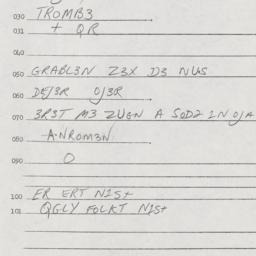 030 TROMB3
031 + QR
040
050 GRABL3N Z3X D3 NUS
060 DEJ3R OJ3R
070 3R3T M3 ZUGN A SOD2 IN OJA
080 A·NROM3N
090 O
100 ER ERT NIST
101 QGLY FOLKT NIST